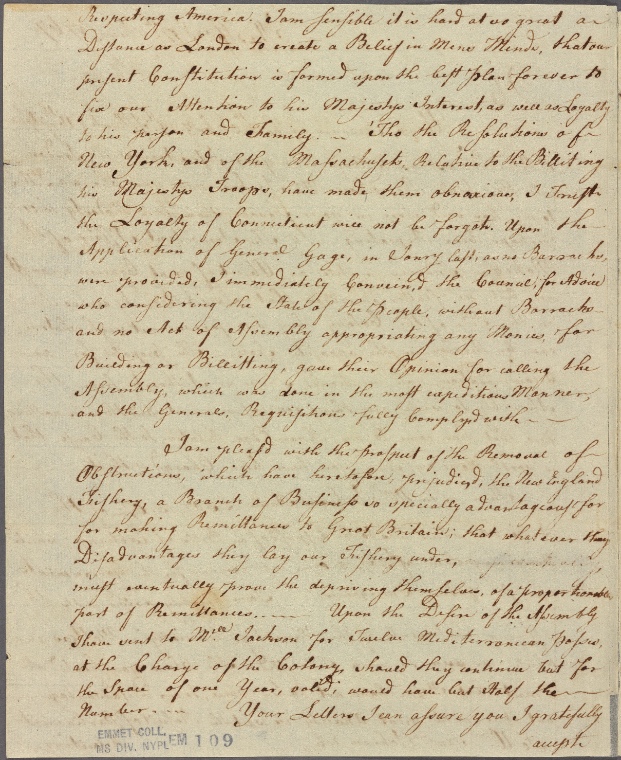 Respecting America. I am sensible it is hard at so great a
Distance as London to create a Belief in Mens Minds, that our
present Constitution is formed upon the best Plan forever to
fix our Attention to his Majestys Interest, as well as Loyalty
to his person and Family. – Tho the Resolutions of
New York, and of the Massachusets, Relative to the Billiting
his Majestys Troops, have made them obnoxious, I Trust
the Loyalty of Connecticut will not be forgot. Upon the
Application of General Gage, in Janry last, as no Barracks,
were provided, I immediately Conven'd the Council, for Advice
who considering the State of the people, without Barracks
and no Act of Assembly appropriating any Monies, for
Building or Billitting, gave their Opinion for calling the
Assembly, which was done in the most expeditious Manner,
and the Generals, Requisitions fully Complyd with –
I am pleas'd with the prospect of the Removal of
Obstructions, which have heretofore, prejudiced, the New England
Fishery, a Branch of Business so specially advantageous for
for making Remittances to Great Britain; that whatever
Disadvantages they lay our Fishery under,
must eventually prove the depriving themselves, of a proportionable
part of Remittances. – Upon the Desire of the Assembly
I have sent to Jackson for Twelve Mediterranean passes,
at the Charge of the Colony, should they continue but for
the Space of one Year, would have but Half the
Number – Your Letters I can assure you I gratefully
accept
EMMET COLL.
MS DIV. NYPL EM 109